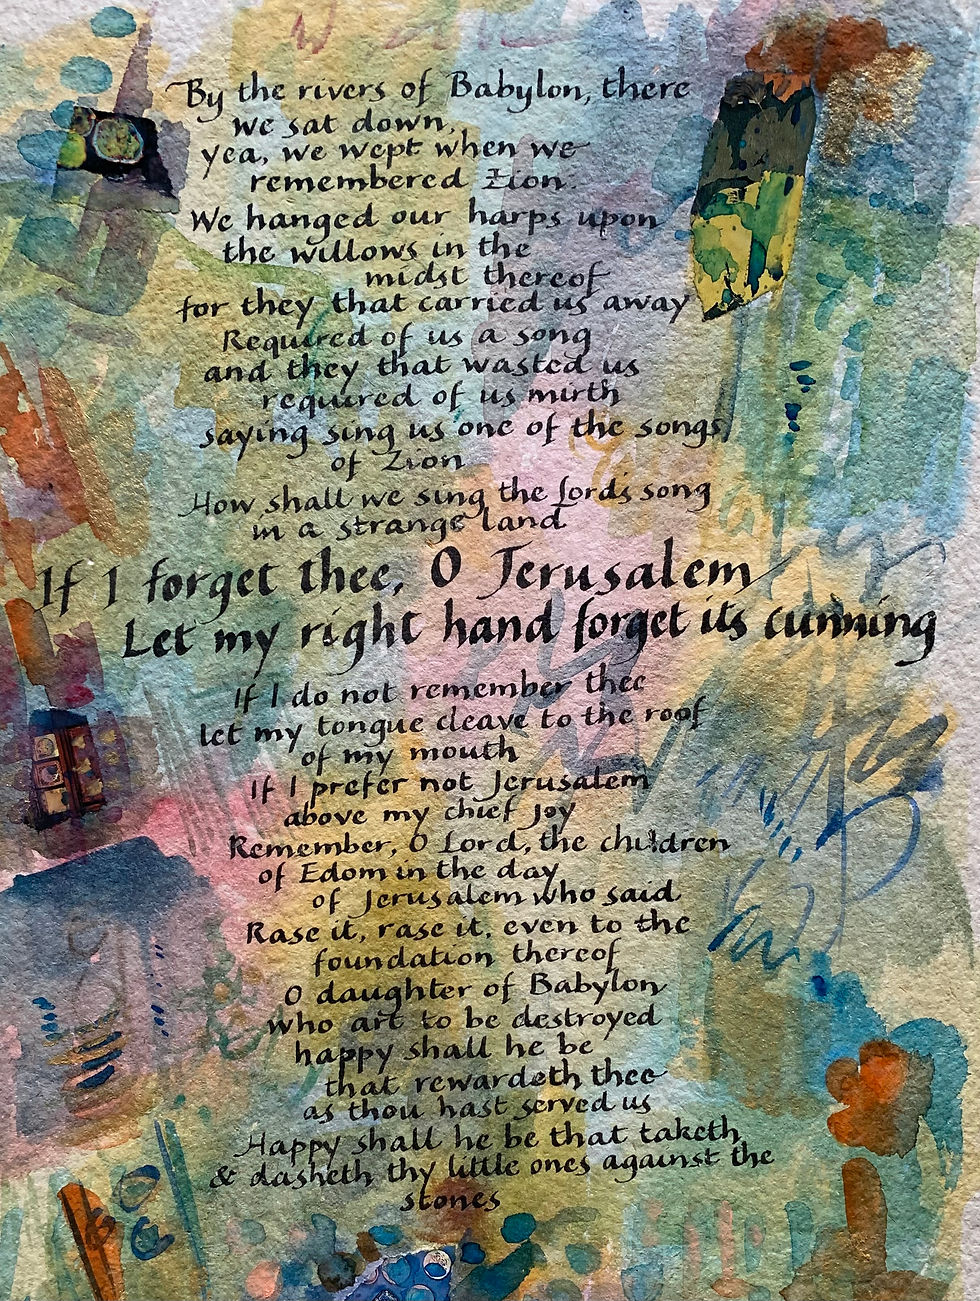 By the rivers of Babylon, there
we sat down,
yea, we wept when we
remembered Zion.
We hanged our harps upon
the willows in the
midst thereof
for they that carried us away
Required of us a song
and they that wasted us
required of us mirth
saying sing us one of the songs
of Zion
How shall we sing the Lords song
in a strange land
If I forget thee, O Jerusalem
Let my right hand forget its cunning
If I do not remember thee
let my tongue cleave to the roof
of my mouth
If I prefer not Jerusalem
above my chief joy
Remember, O Lord, the children
of Edom in the day
of Jerusalem who said,
Rase it, rase it, even to the
foundation thereof
O daughter of Babylon
who art to be destroyed
happy shall he be
that rewardeth thee
as thou hast served us
Happy shall he be that taketh
& dasheth thy little ones against the
stones